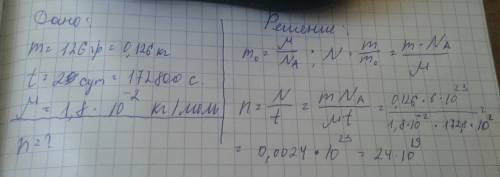 Дано:
m = 126 гр = 0,126 кг
t = 2 сут = 172800 с.
μ = 1,8 · 10⁻² кг/моль
n = ?
Решение:
m₀ = μ/N_A ; N = m/m₀ = m · N_A/μ
n = N/t = mN_A/μt = 0,126 · 6 · 10²³/1,8 · 10⁻² · 1728 · 10² =
= 0,0024 · 10²³ = 24 · 10¹⁹